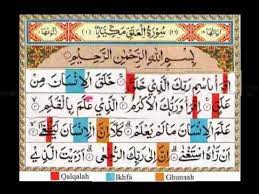 سُوْرَةُ الْعَلَقِ مَكِّيَّةٌ
بِسْمِ اللهِ الرَّحْمٰنِ الرَّحِيْمِ
اِقْرَأْ بِاسْمِ رَبِّكَ الَّذِيْ خَلَقَ ۝ خَلَقَ الْاِنْسَانَ مِنْ
عَلَقٍ ۝ اِقْرَأْ وَرَبُّكَ الْاَكْرَمُ ۝ الَّذِيْ عَلَّمَ بِالْقَلَمِ ۝
عَلَّمَ الْاِنْسَانَ مَا لَمْ يَعْلَمْ ۝ كَلَّا اِنَّ الْاِنْسَانَ لَيَطْغٰى
اَنْ رَّاٰهُ اسْتَغْنٰى ۝ اِنَّ اِلٰى رَبِّكَ الرُّجْعٰى ۝ اَرَءَيْتَ الَّذِيْ
Qalqalah Ikhfa Ghunnah